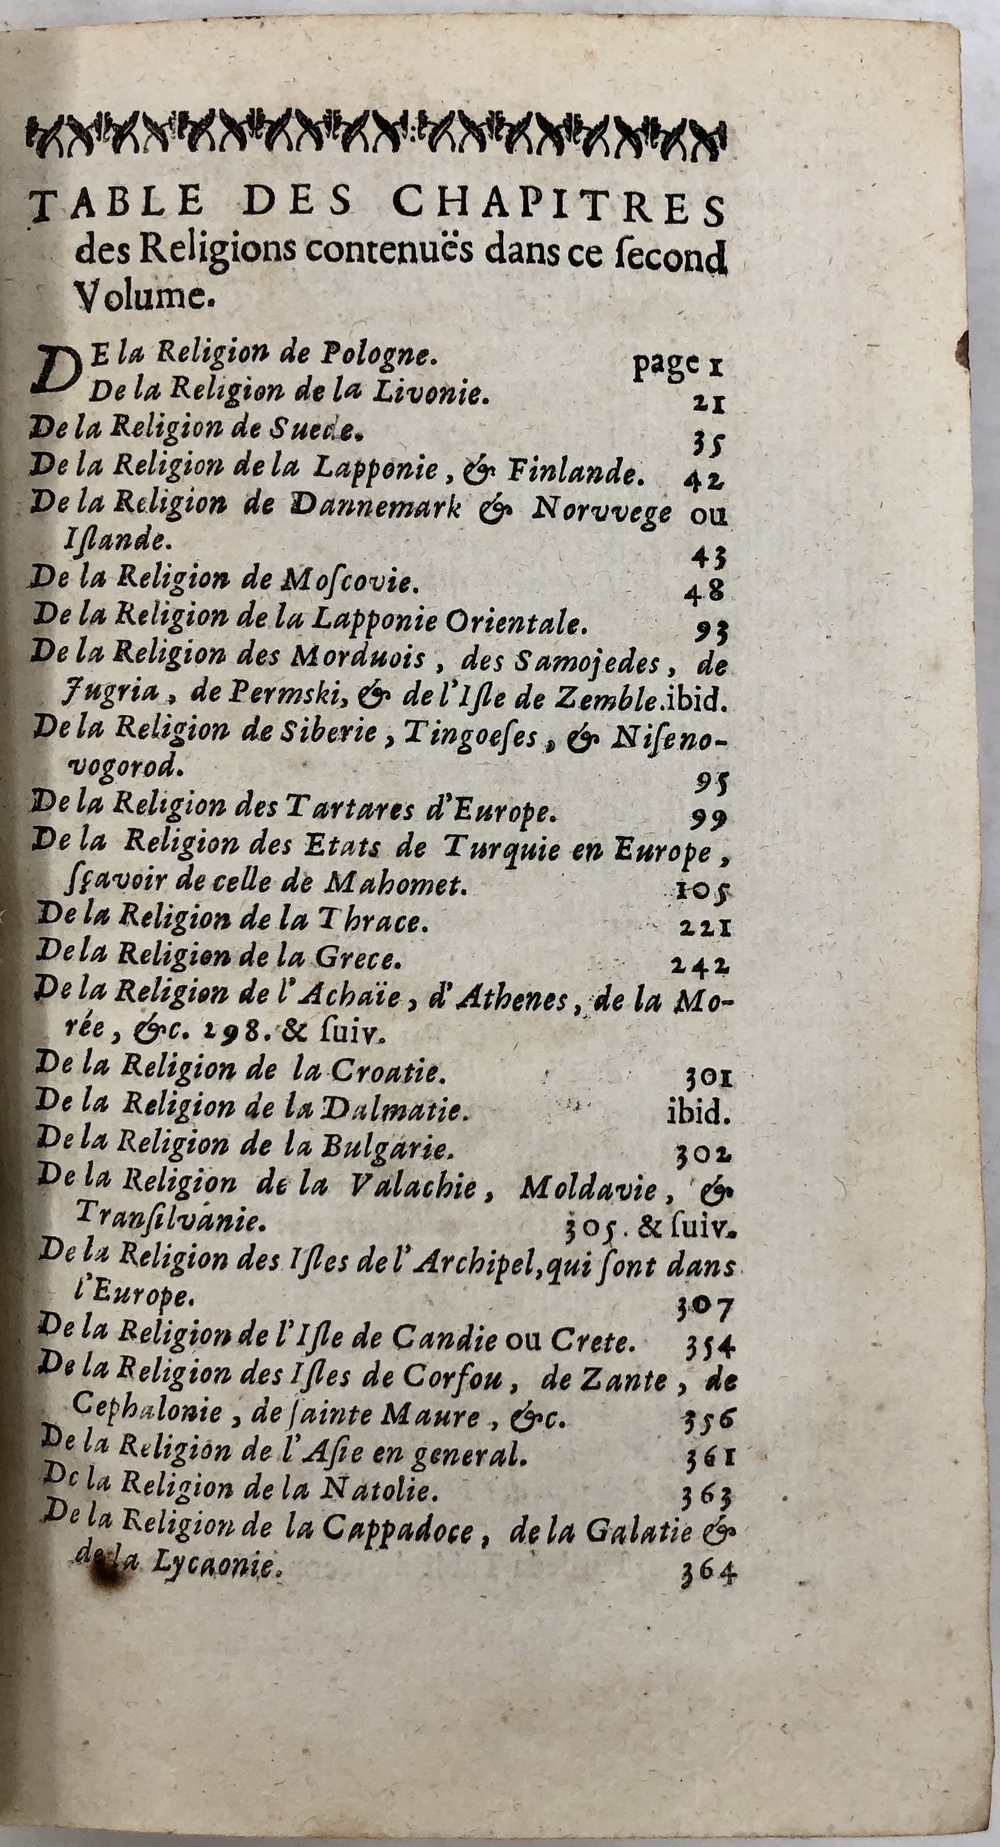 TABLE DES CHAPITRES
des Religions contenuës dans ce ſecond
Volume.
DE la Religion de Pologne. page 1
De la Religion de la Livonie. 21
De la Religion de Suede. 35
De la Religion de la Lapponie, & Finlande. 42
De la Religion de Dannemark & Norvvege ou
Iſlande. 43
De la Religion de Moſcovie. 48
De la Religion de la Lapponie Orientale. 93
De la Religion des Morduois, des Samojedes, de
Jugria, de Permski, & de l'Iſle de Zemble. ibid.
De la Religion de Siberie, Tingoeſes, & Niſeno-
vogorod. 95
De la Religion des Tartares d'Europe. 99
De la Religion des Etats de Turquie en Europe,
ſçavoir de celle de Mahomet. 105
De la Religion de la Thrace. 221
De la Religion de la Grece. 242
De la Religion de l'Achaïe, d'Athenes, de la Mo-
rée, &c. 298. & ſuiv.
De la Religion de la Croatie. 301
De la Religion de la Dalmatie. ibid.
De la Religion de la Bulgarie. 302
De la Religion de la Valachie, Moldavie, &
Tranſilvanie. 305. & ſuiv.
De la Religion des Iſles de l'Archipel, qui ſont dans
l'Europe. 307
De la Religion de l'Iſle de Candie ou Crete. 354
De la Religion des Iſles de Corfou, de Zante, de
Cephalonie, de ſainte Maure, &c. 356
De la Religion de l'Aſie en general. 361
De la Religion de la Natolie. 363
De la Religion de la Cappadoce, de la Galatie &
de la Lycaonie. 364